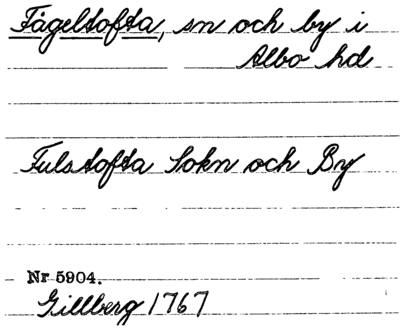 Fågeltofta, sn och by i
Albo hd
Fulstofta Sokn och By
Nr 5904.
Gillberg 1767